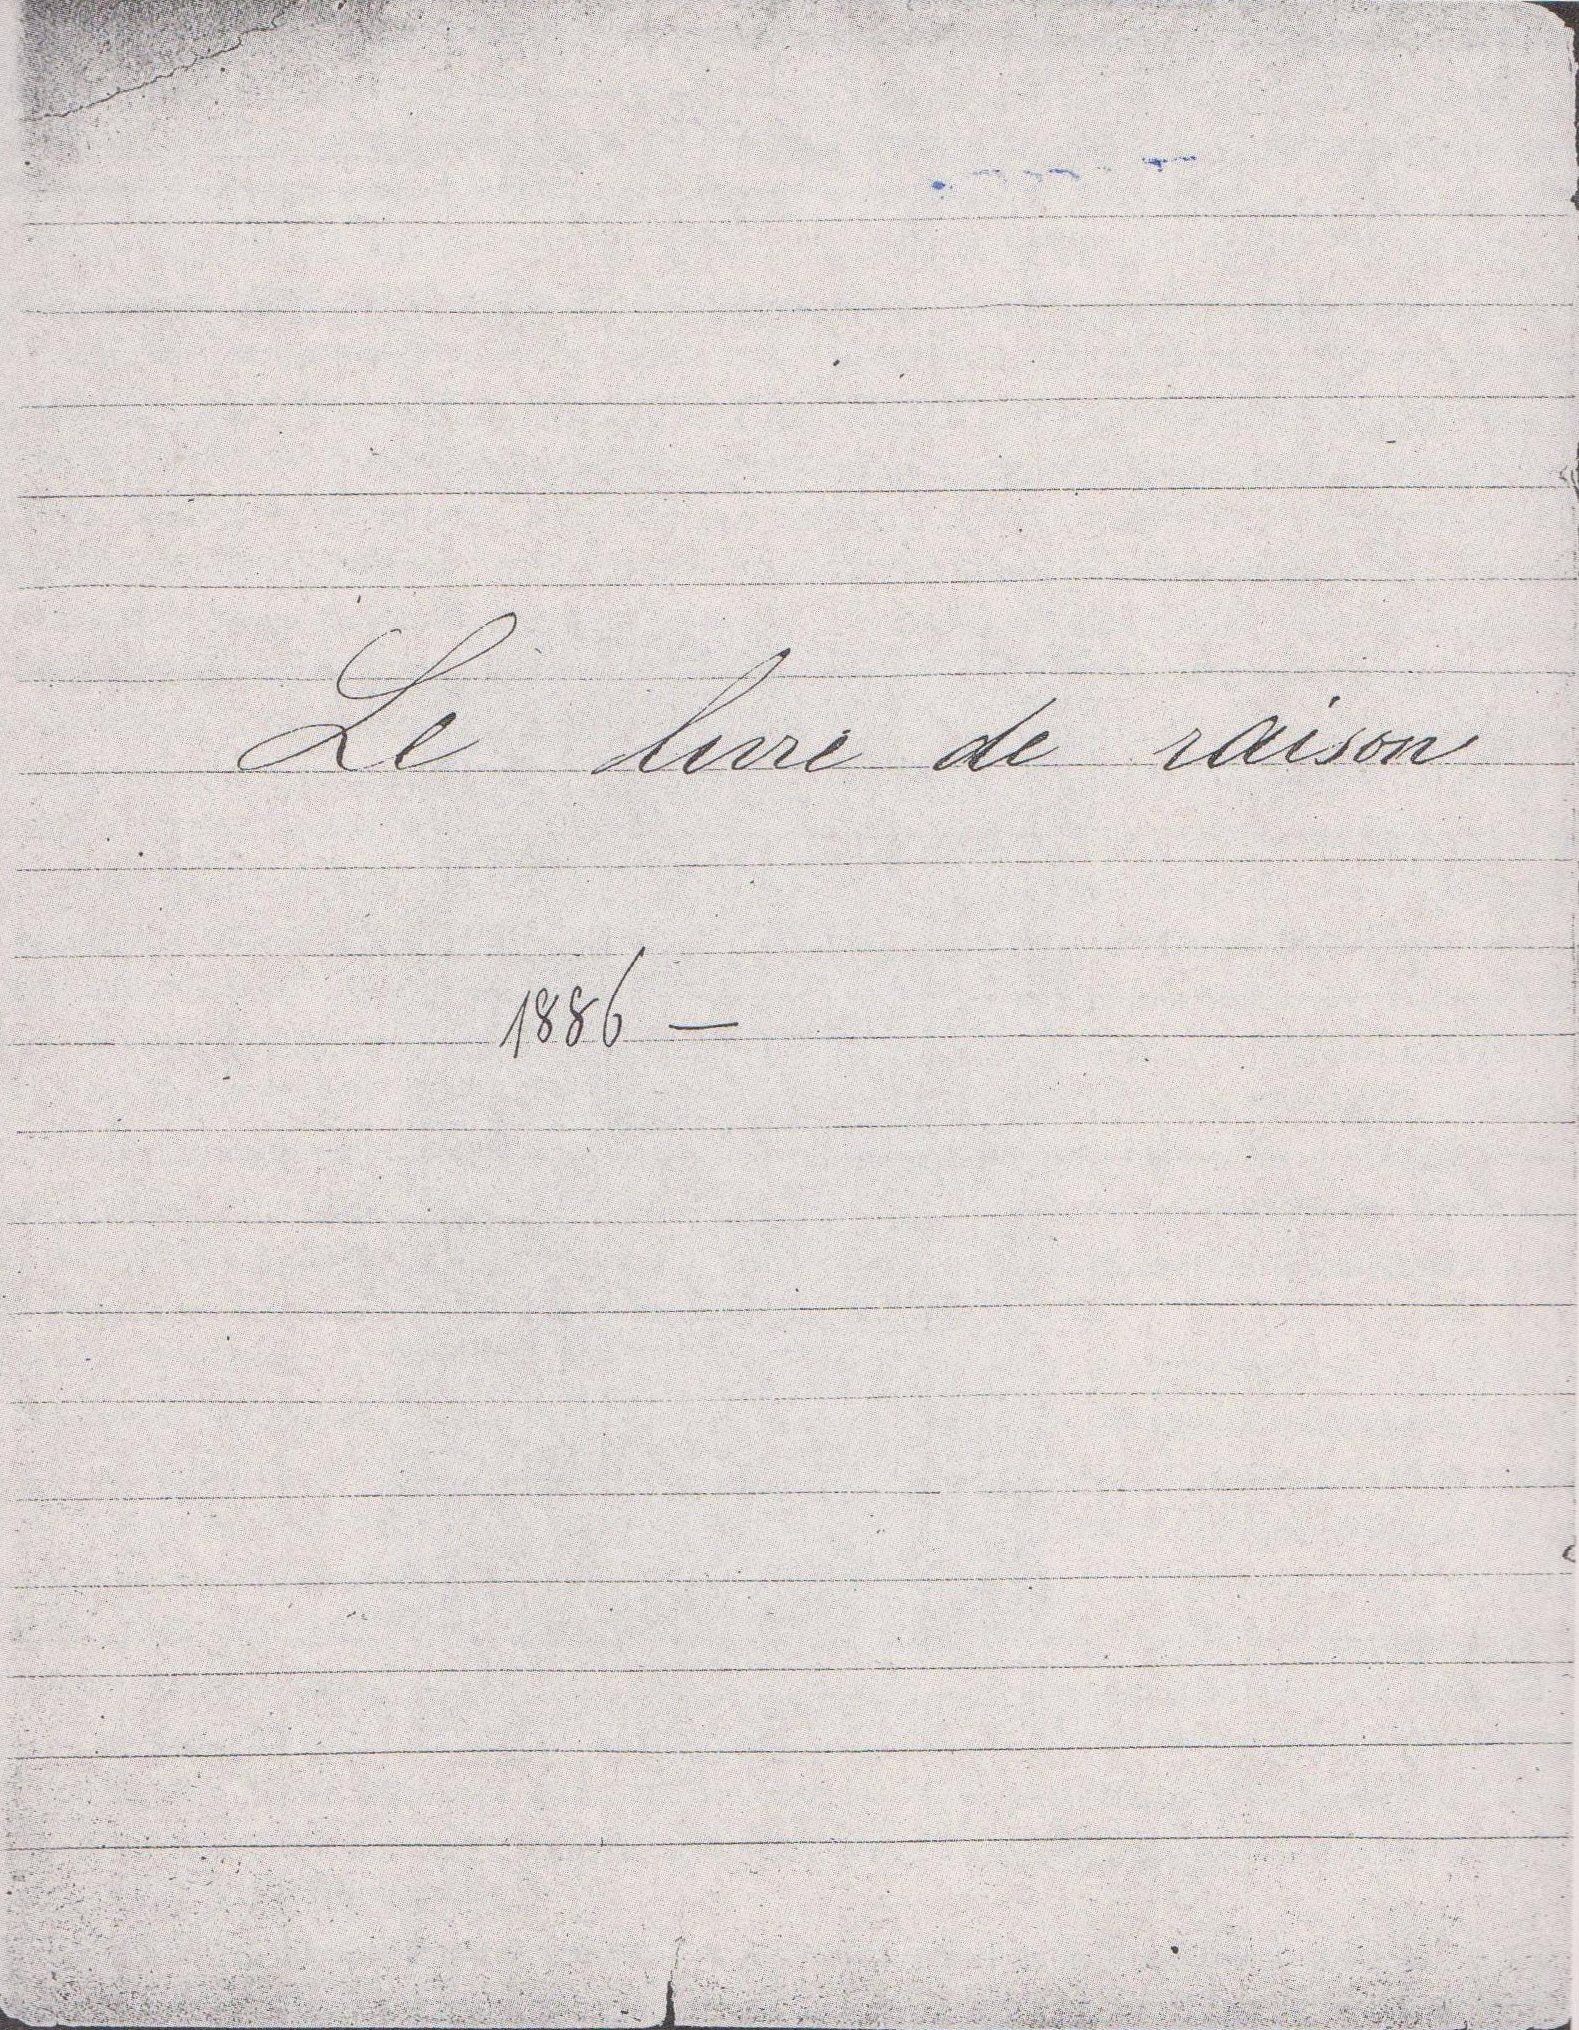 Le livre de raison
1886 —